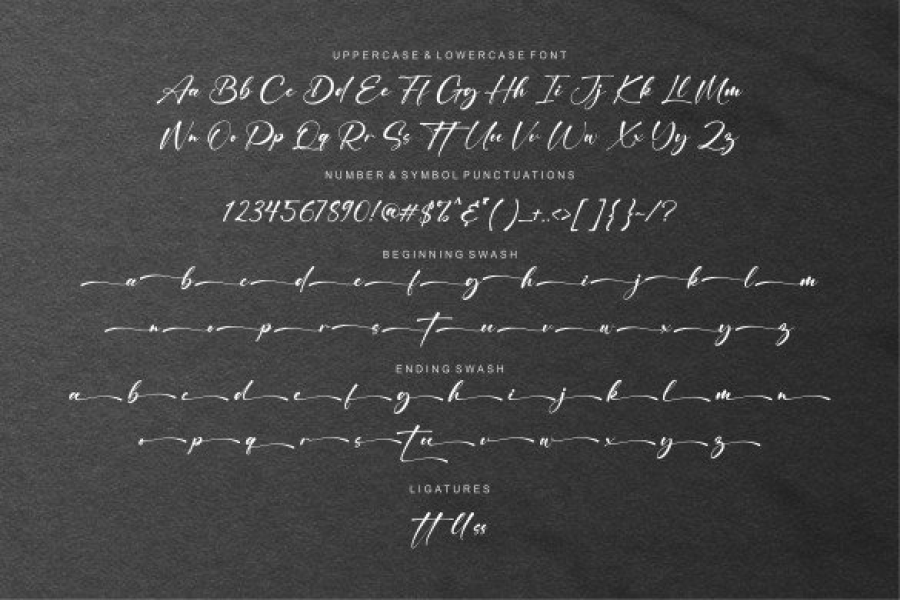 UPPERCASE & LOWERCASE FONT
Aa Bb Cc Dd Ee Ff Gg Hh Ii Jj Kk Ll Mm
Nn Oo Pp Qq Rr Ss Tt Uu Vv Ww Xx Yy Zz
NUMBER & SYMBOL PUNCTUATIONS
1234567890!@#$%^&*()_+..<>[]{}~/?
BEGINNING SWASH
a b c d e f g h i j k l m
n o p r s t u v w x y z
ENDING SWASH
a b c d e f g h i j k l m n
o p q r s t u v w x y z
LIGATURES
tt ll ss